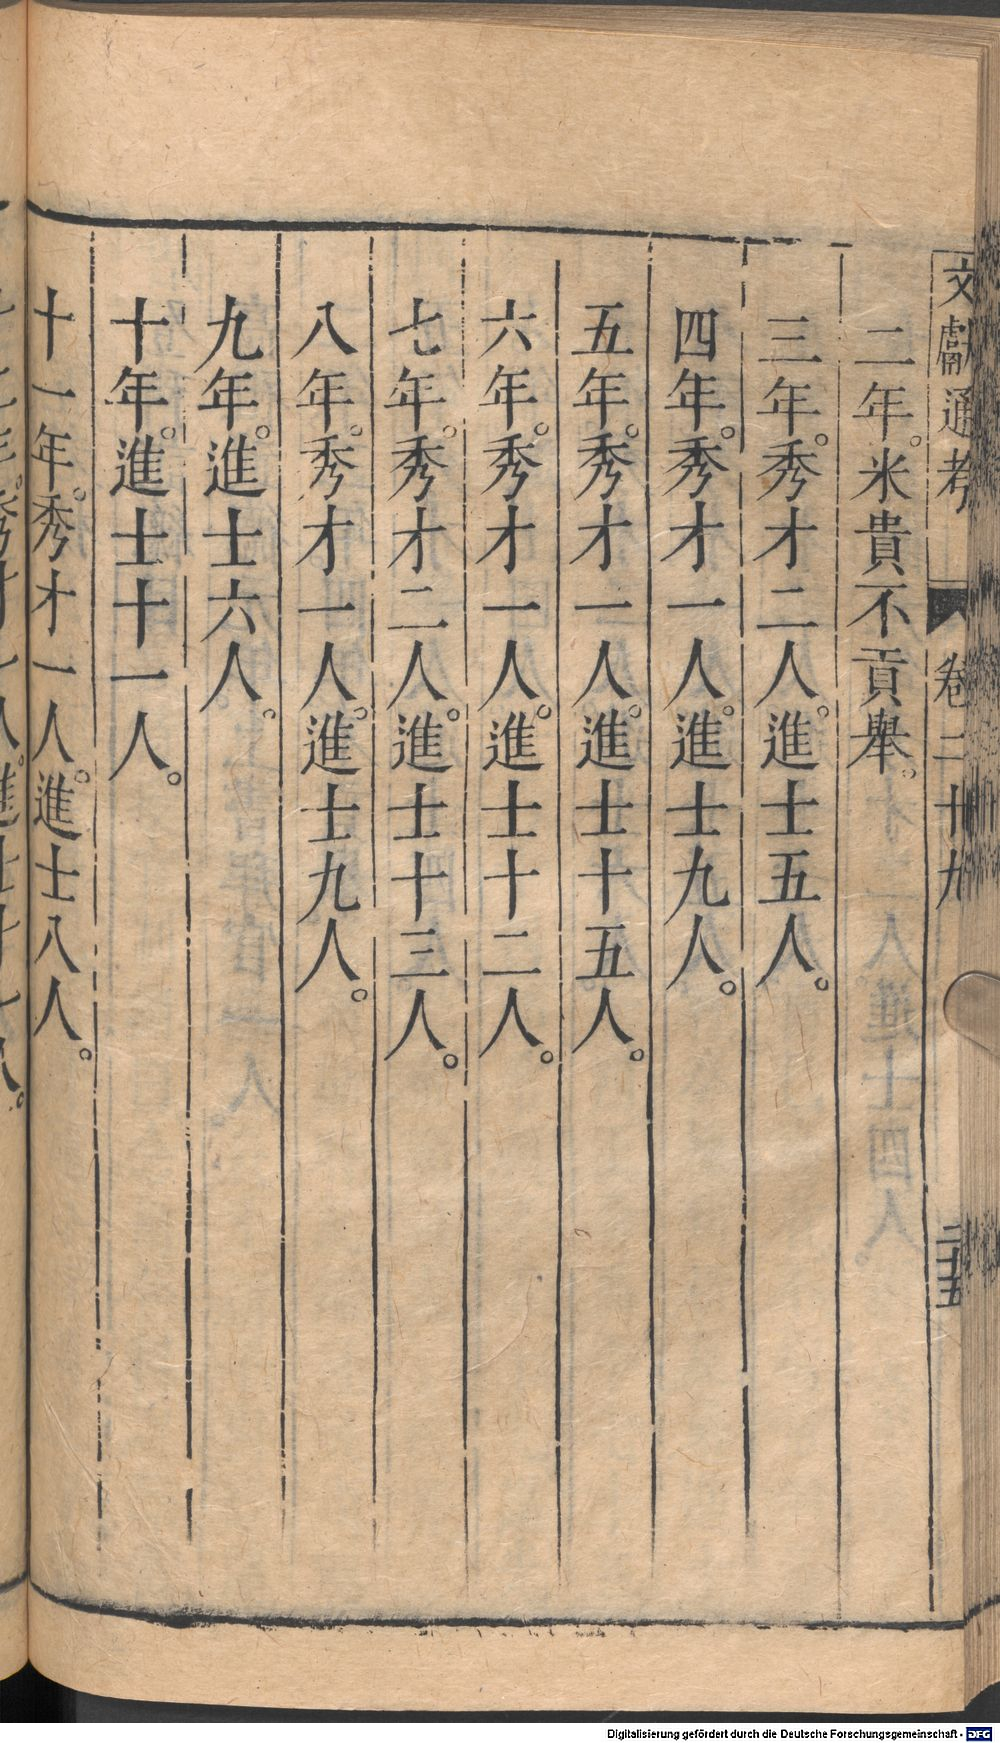 文獻通考 卷二十九 二十五
二年。米貴不貢舉。
三年。秀才二人。進士五人。
四年。秀才一人。進士九人。
五年。秀才一人。進士十五人。
六年。秀才一人。進士十二人。
七年。秀才二人。進士十三人。
八年。秀才一人。進士九人。
九年。進士六人。
十年。進士十一人。
十一年。秀才一人。進士八人。
Digitalisierung gefördert durch die Deutsche Forschungsgemeinschaft - DFG